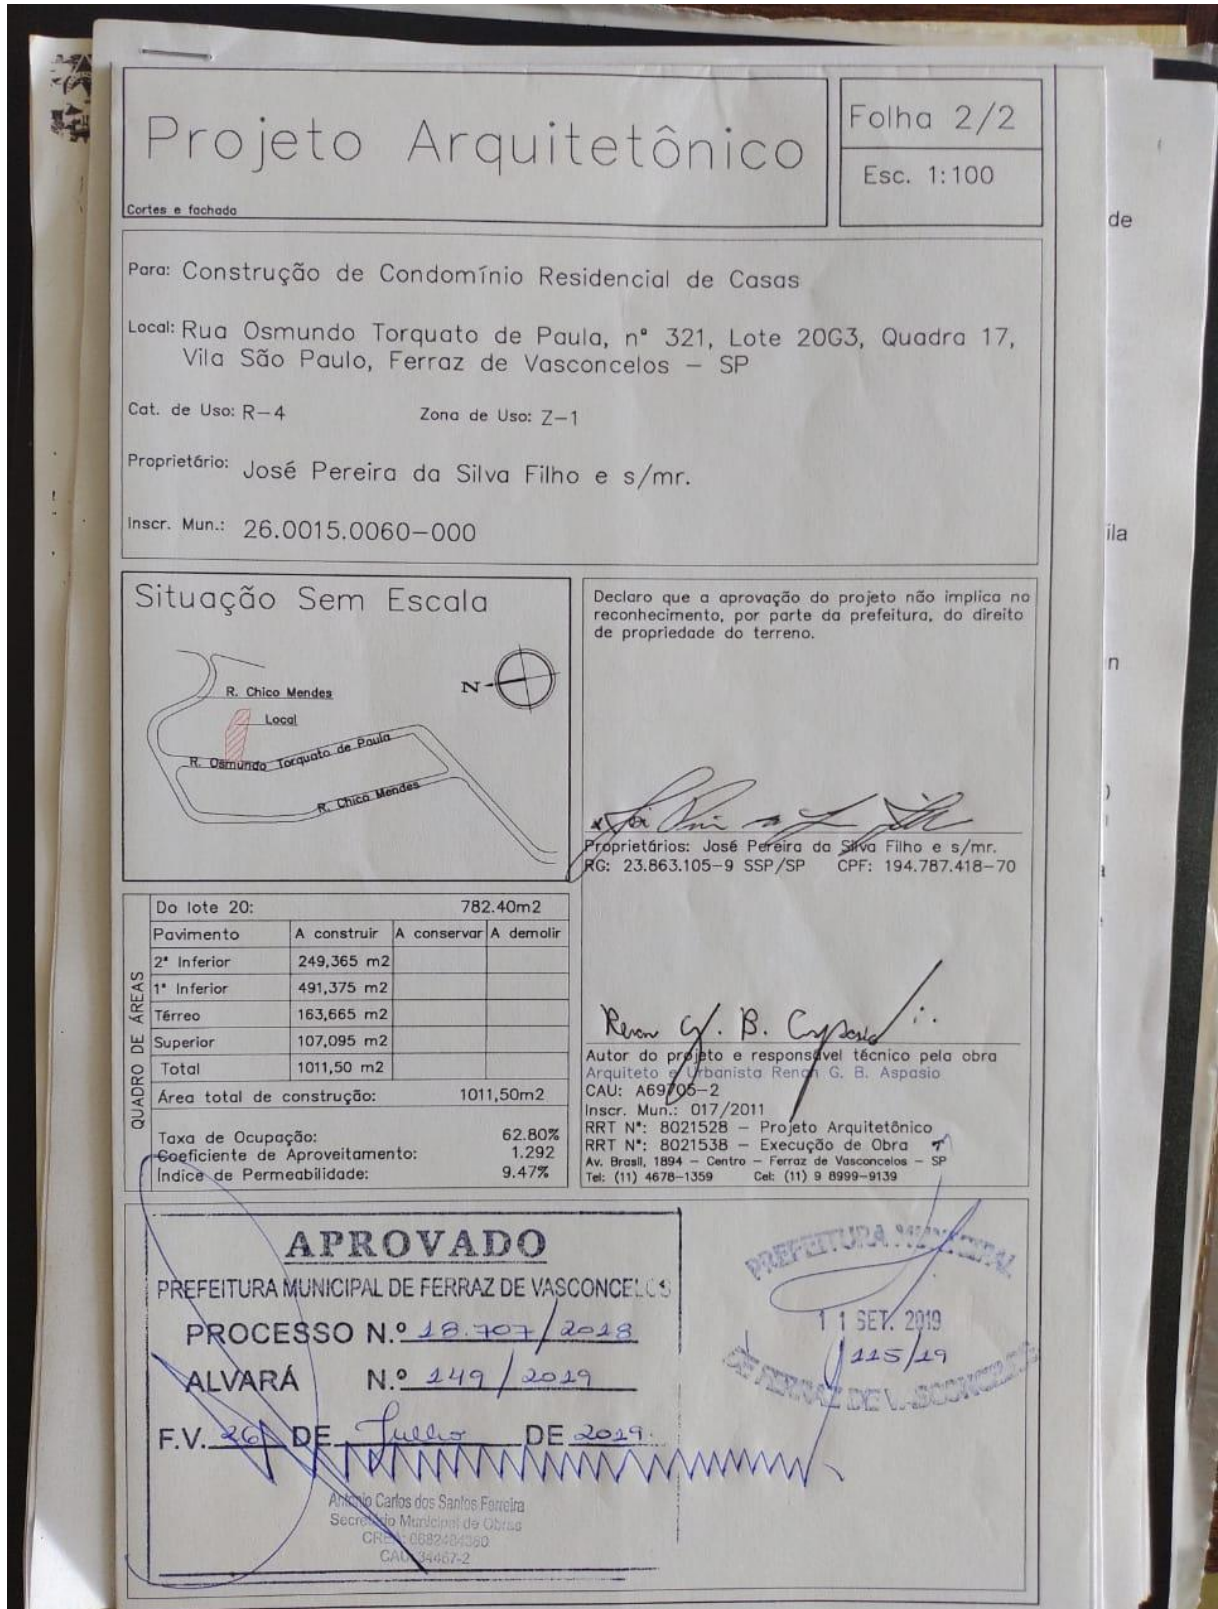 Projeto Arquitetônico
Cortes e fachada
Folha 2/2
Esc. 1:100
Para: Construção de Condomínio Residencial de Casas
Local: Rua Osmundo Torquato de Paula, nº 321, Lote 20G3, Quadra 17,
Vila São Paulo, Ferraz de Vasconcelos – SP
Cat. de Uso: R-4 Zona de Uso: Z-1
Proprietário: José Pereira da Silva Filho e s/mr.
Inscr. Mun.: 26.0015.0060-000
Situação Sem Escala
R. Chico Mendes
N
Local
R. Osmundo Torquato de Paula
R. Chico Mendes
Declaro que a aprovação do projeto não implica no
reconhecimento, por parte da prefeitura, do direito
de propriedade do terreno.
Proprietários: José Pereira da Silva Filho e s/mr.
RG: 23.863.105-9 SSP/SP CPF: 194.787.418-70
QUADRO DE ÁREAS
Do lote 20: 782.40m2
Pavimento A construir A conservar A demolir
2º Inferior 249,365 m2
1º Inferior 491,375 m2
Térreo 163,665 m2
Superior 107,095 m2
Total 1011,50 m2
Área total de construção: 1011,50m2
Taxa de Ocupação: 62.80%
Coeficiente de Aproveitamento: 1.292
Índice de Permeabilidade: 9.47%
Autor do projeto e responsável técnico pela obra
Arquiteto e Urbanista Renan G. B. Aspasio
CAU: A69705-2
Inscr. Mun.: 017/2011
RRT Nº: 8021528 – Projeto Arquitetônico
RRT Nº: 8021538 – Execução de Obra
Av. Brasil, 1894 – Centro – Ferraz de Vasconcelos – SP
Tel: (11) 4678-1359 Cel: (11) 9 8999-9139
APROVADO
PREFEITURA MUNICIPAL DE FERRAZ DE VASCONCELOS
PROCESSO N.º 18.707/2018
ALVARÁ N.º 149/2019
F.V. 26 DE Julho DE 2019.
Antonio Carlos dos Santos Ferreira
Secretário Municipal de Obras
PREFEITURA MUNICIPAL
11 SET. 2019
115/19
DE FERRAZ DE VASCONCELOS
de
ila
n